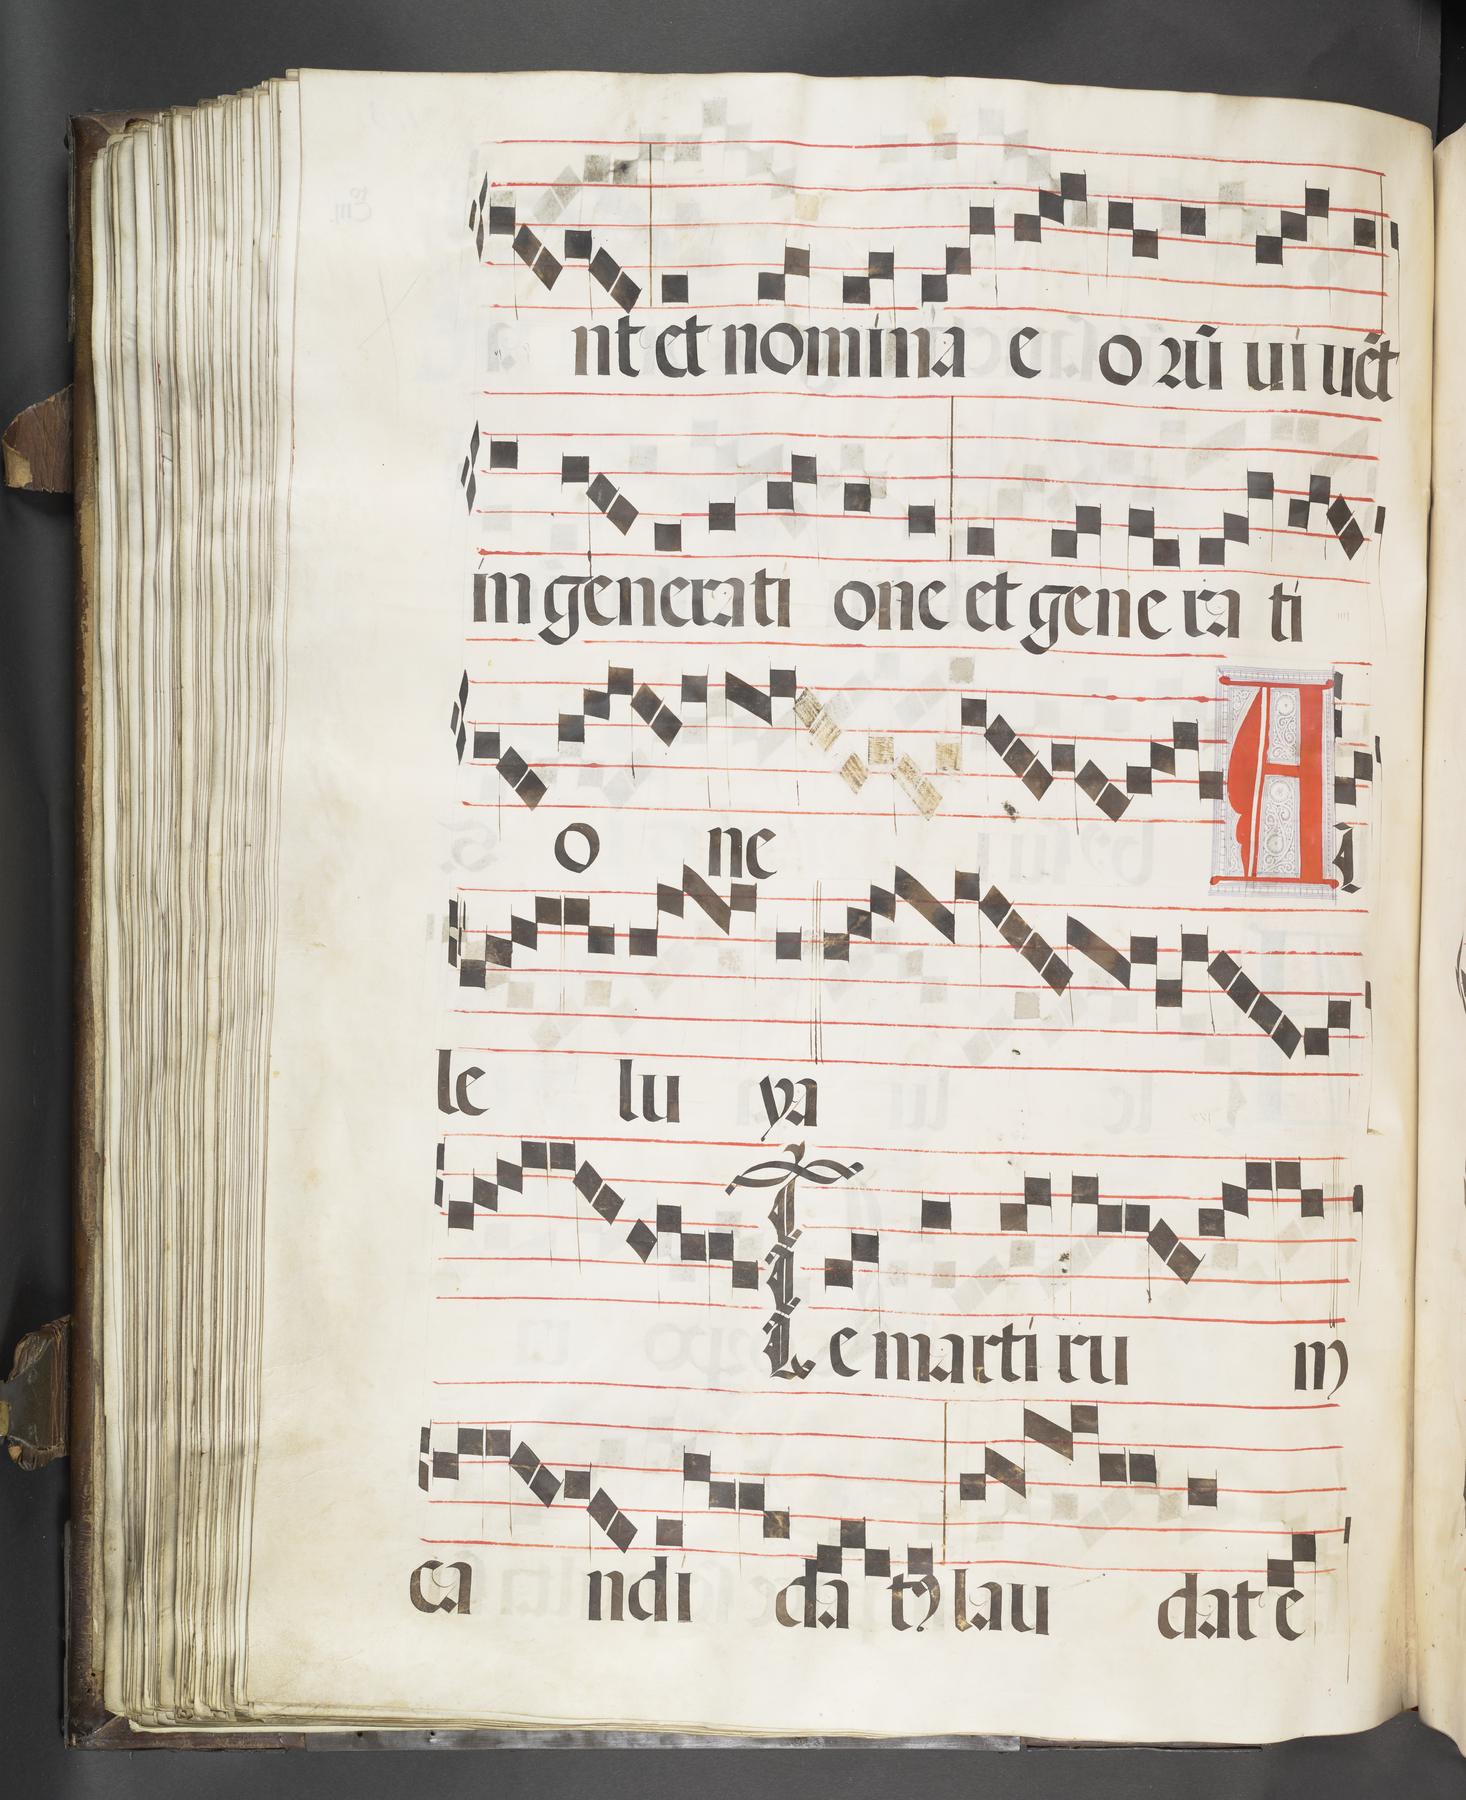 nt et nomina e o ꝝū ui uēt
in generati one et gene ra ti
o ne A l
le lu ya
Te marti ru m
ca ndi da t9 lau dat e